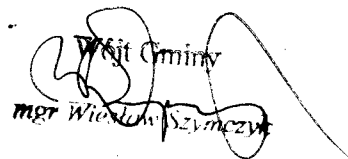 Wójt Gminy
mgr Wiesław Szymczyk